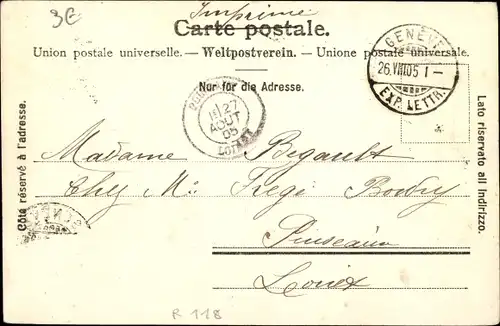 3€
Imprimé
Carte postale.
Union postale universelle. — Weltpostverein. — Unione postale universale.
Nur für die Adresse.
GENÈVE
26.VIII.05 I –
EXP. LETTR.
27
AOUT
05
LOIRET
Côté réservé à l'adresse.
Lato riservato all'indirizzo.
Madame Bigault
Chez Mr
Loiret
R 118